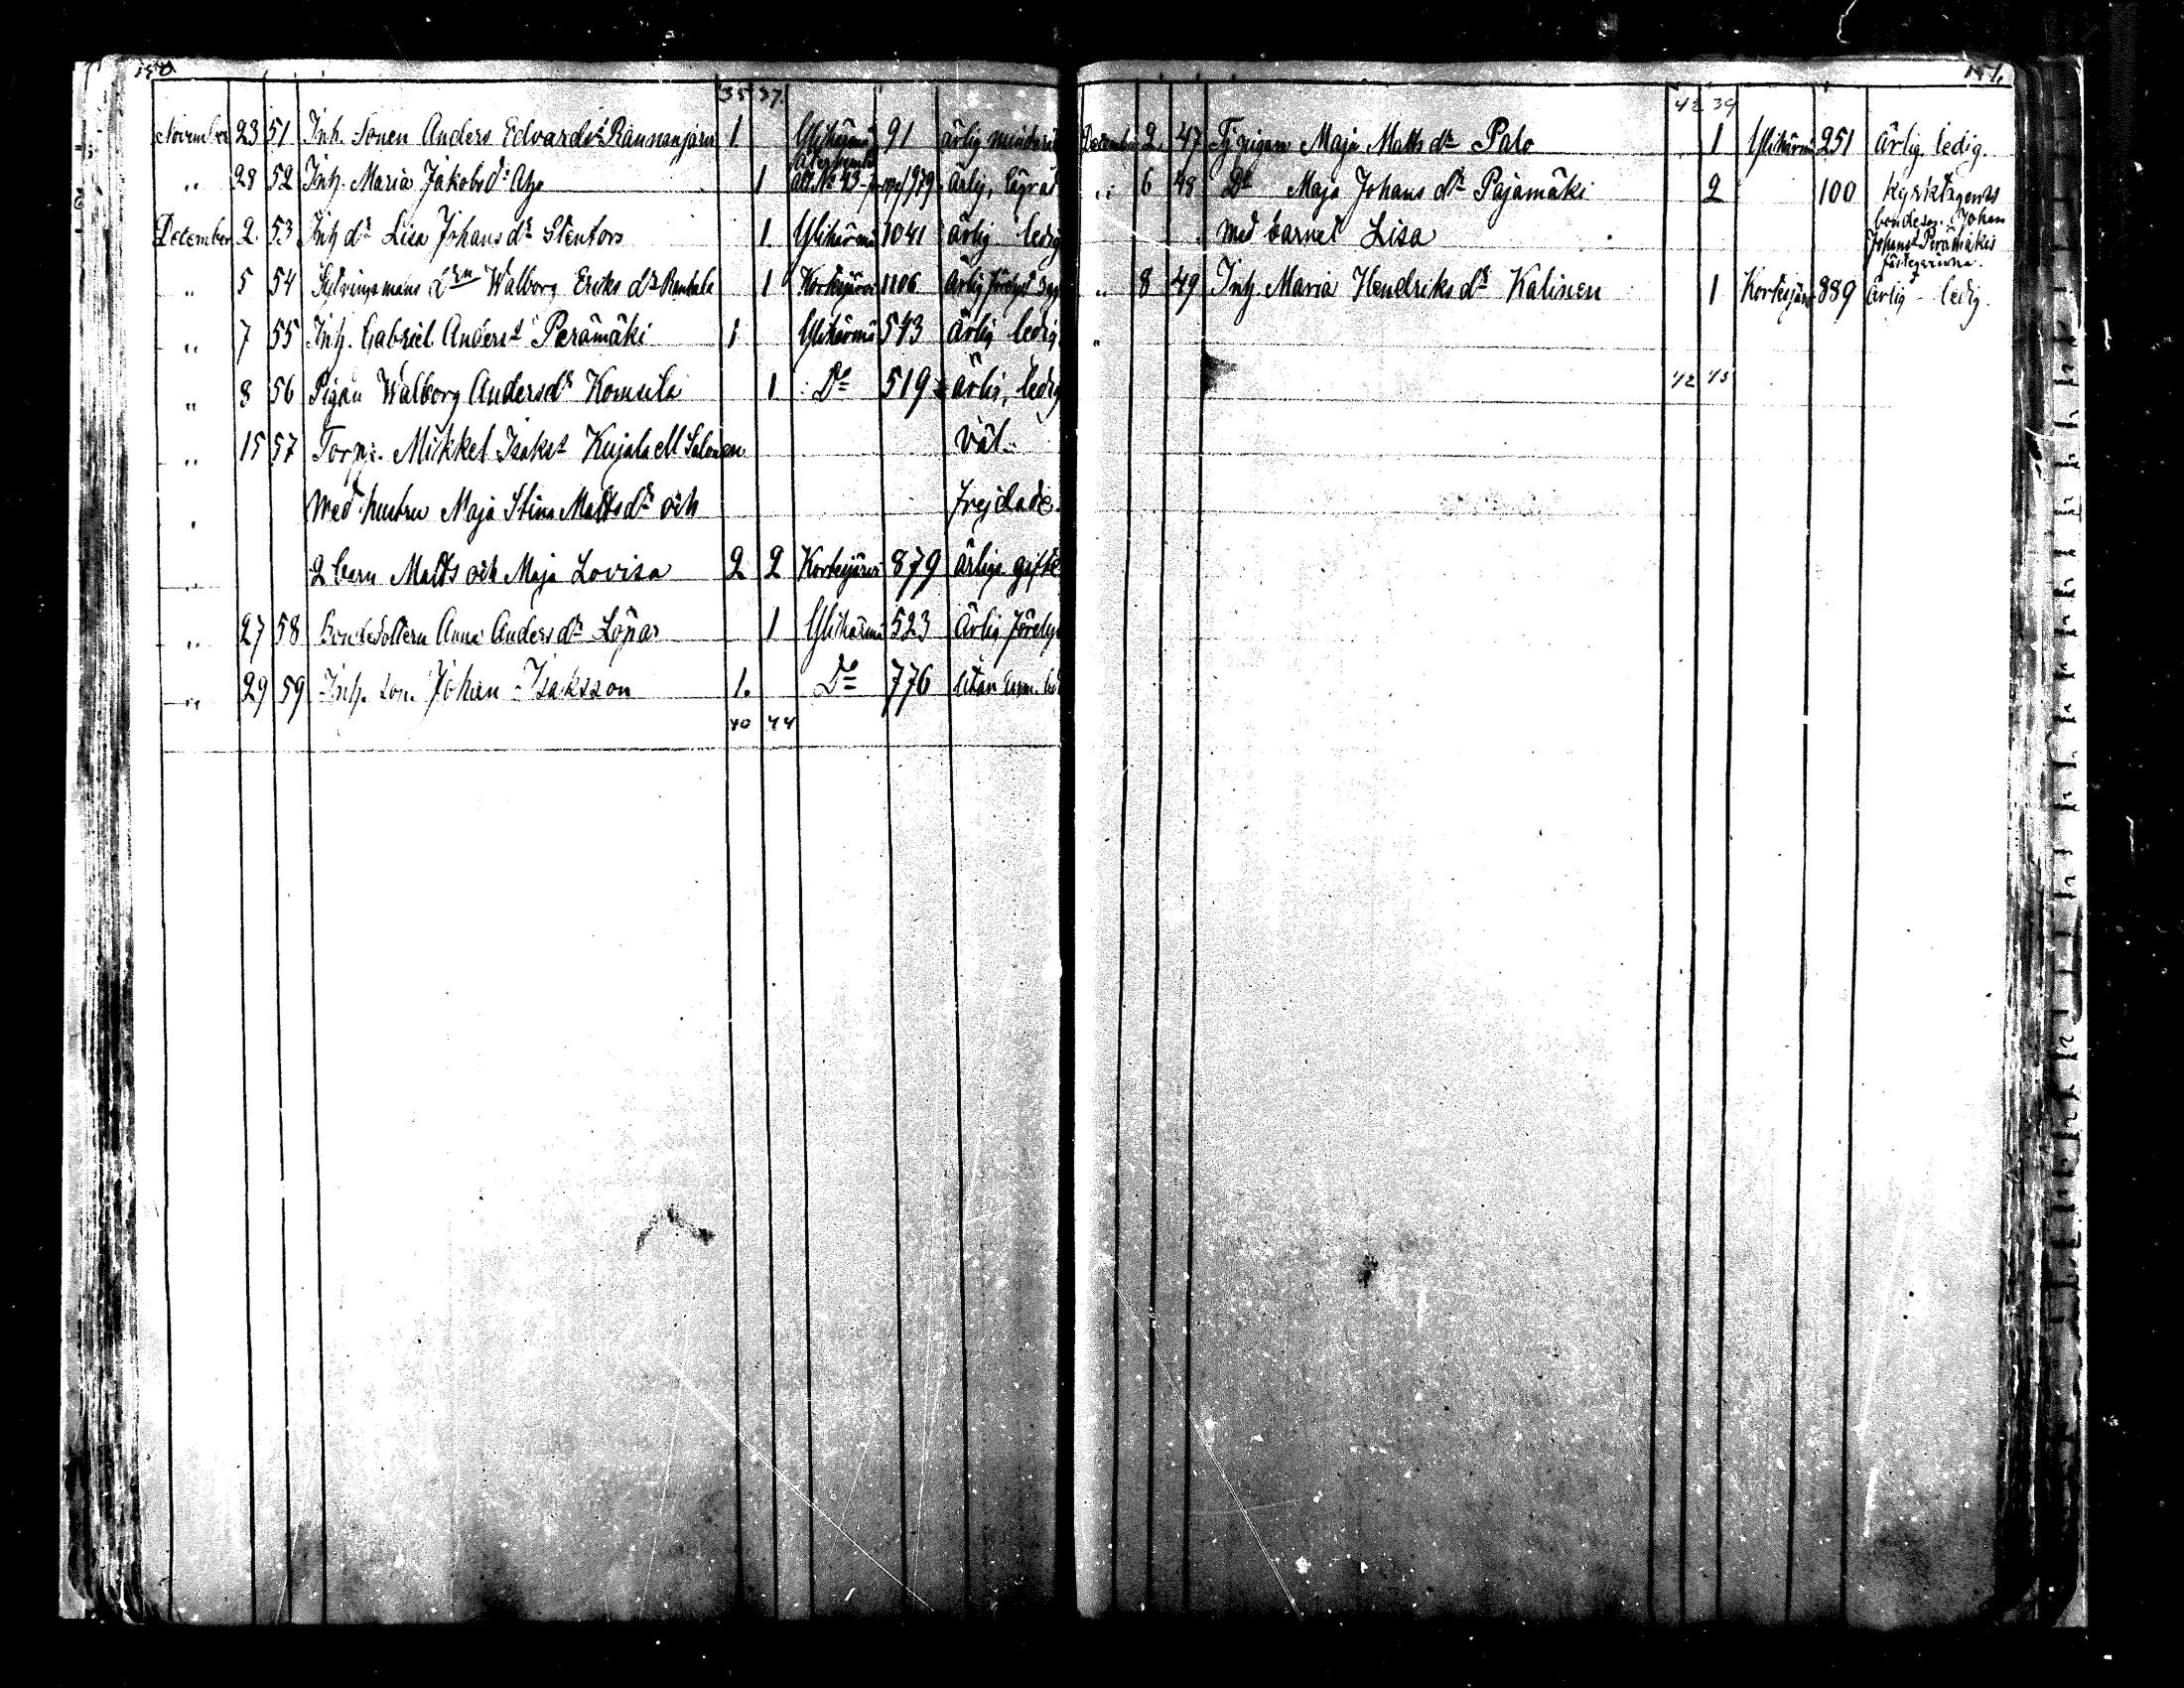 150
35 37
November 23 51 Inh. Sonen Anders Edvards Rannanjärvi 1 Ylihärmä 91 ärlig
,, 28 52 Inh. Maria Jakobs dr 1 att. No 43 979 ärlig,
December 2 53 Inh dr Lisa Johans dr Stenfors 1 Ylihärmä 1041 ärlig ledig
,, 5 54 Walborg Eriks dr 1 Kortesjärvi 1106 ärlig
,, 7 55 Inh. Gabriel Anderst Perämäki 1 Ylihärmä 543 ärlig ledig
,, 8 56 Pigan Walborg Anders dr Komsila 1 Do 519 ärlig, ledig
,, 15 57 Torp: Mikkel Isakst Kujala ell Salonen Väl
med hustru Maja Stina Matts dr och frejdade
2 barn Matts och Maja Lovisa 2 2 Kortesjärvi 879 ärliga gifte
,, 27 58 Bondedottern Anna Anders dr Löpar 1 Ylihärmä 523 ärlig
,, 29 59 Inh. son. Johan Isaksson 1. Do 776 utan
40 44
151.
42 39
December 2 47 Tj pigan Maja Matts dr Palo 1 Ylihärmä 251 ärlig ledig.
,, 6 48 Do Maja Johans dr Pajamäki 2 100 Kyrktagen
med barnet Lisa bondeson. Johan
Johanst Perämäkis
,, 8 49 Inh Maria Hendriks dr Kalinen 1 Kortesjärvi 889 ärlig - ledig.
,,
42 43